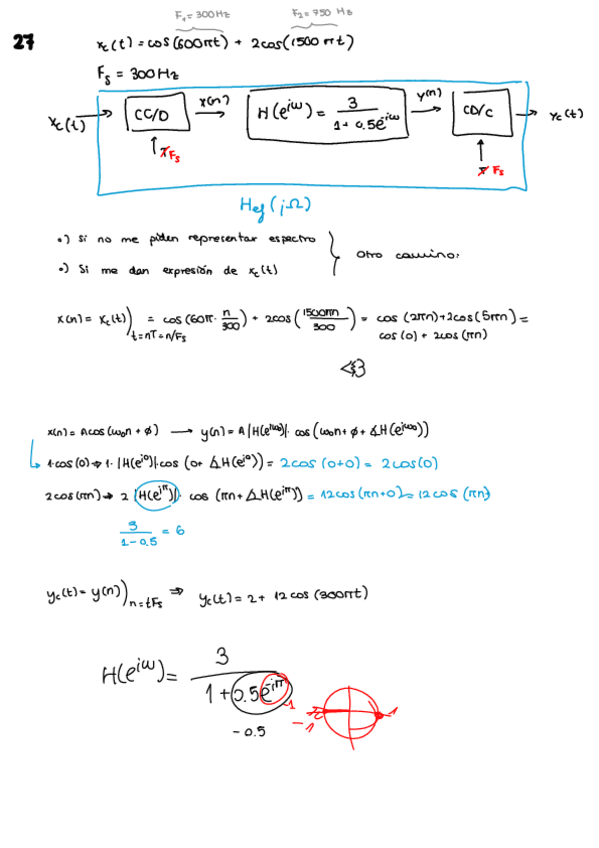 F₁=300Hz F₂=750 Hz
27 x_c(t)=cos(600πt) + 2cos(1500πt)
F_s = 300Hz
x_c(t) CC/D x(n) H(e^{iω}) = 3/(1+0.5e^{iω}) y(n) CD/C y_c(t)
F_s F_s
H_ef(jΩ)
•) Si no me piden representar espectro
•) Si me dan expresión de x_c(t)
Otro camino:
x(n) = x_c(t))_{t=nT=n/F_s} = cos(60π· n/300) + 2cos(1500πn/300) = cos(2πn)+2cos(5πn) =
cos(0) + 2cos(πn)
x(n)=Acos(ω₀n+ϕ) → y(n)=A|H(e^{iω₀})|· cos(ω₀n+ϕ+∡H(e^{iω₀}))
1·cos(0) → 1·|H(e^{i0})|·cos(0+∡H(e^{i0})) = 2cos(0+0) = 2cos(0)
2cos(πn) → 2|H(e^{iπ})| cos(πn+∡H(e^{iπ})) = 12cos(πn+0) = 12cos(πn)
3/(1-0.5) = 6
y_c(t) = y(n))_{n=tF_s} ⇒ y_c(t) = 2 + 12cos(300πt)
H(e^{iω}) = 3/(1+0.5e^{iπ})
-1
-1
1
-0.5